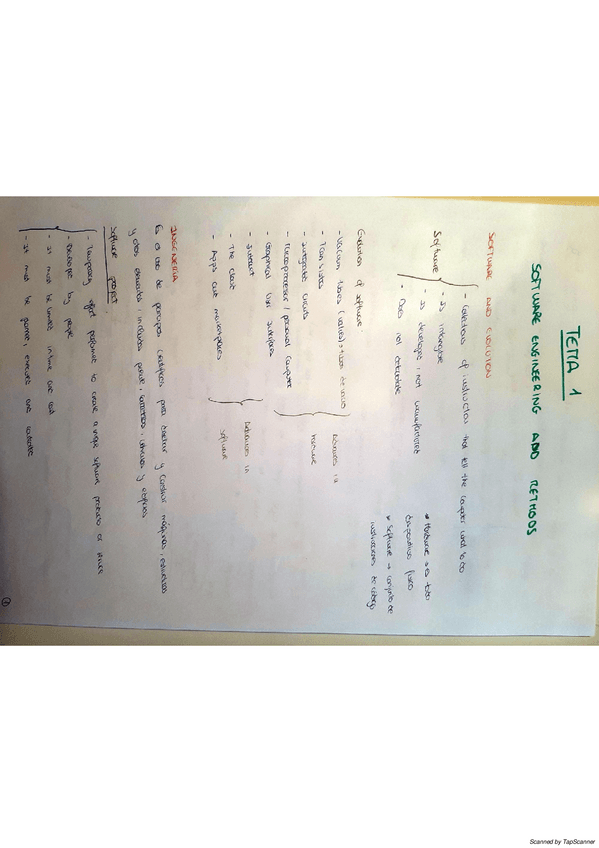 TEMA 1
SOFTWARE ENGINEERING AND METHODS
SOFTWARE AND EVOLUTION
- Collections of instruction that tell the computer what to do
Software
- Is intangible
- Is developed, not manufactured
- Does not
* Hardware → es todo
dispositivo físico
* Software → conjunto de
instrucciones de código
Evolution of software:
- Vacuum tubes (valves) = tubos de vacío
- Transistors
- Integrated circuits
- Microprocessor / personal computer
- Graphical User Interfaces
- Internet
- The cloud
- Apps and
Advances in
hardware
Advances in
software
INGENIERÍA
Es el uso de principios científicos para diseñar y construir máquinas, estructuras
y otros elementos, incluidos puentes, carreteras, vehículos y edificios
Software project
- Temporary effort performed to create a unique software product or service
- Developed by people
- It must be limited in time and cost
- It must be planned, executed and controlled
1
Scanned by TapScanner